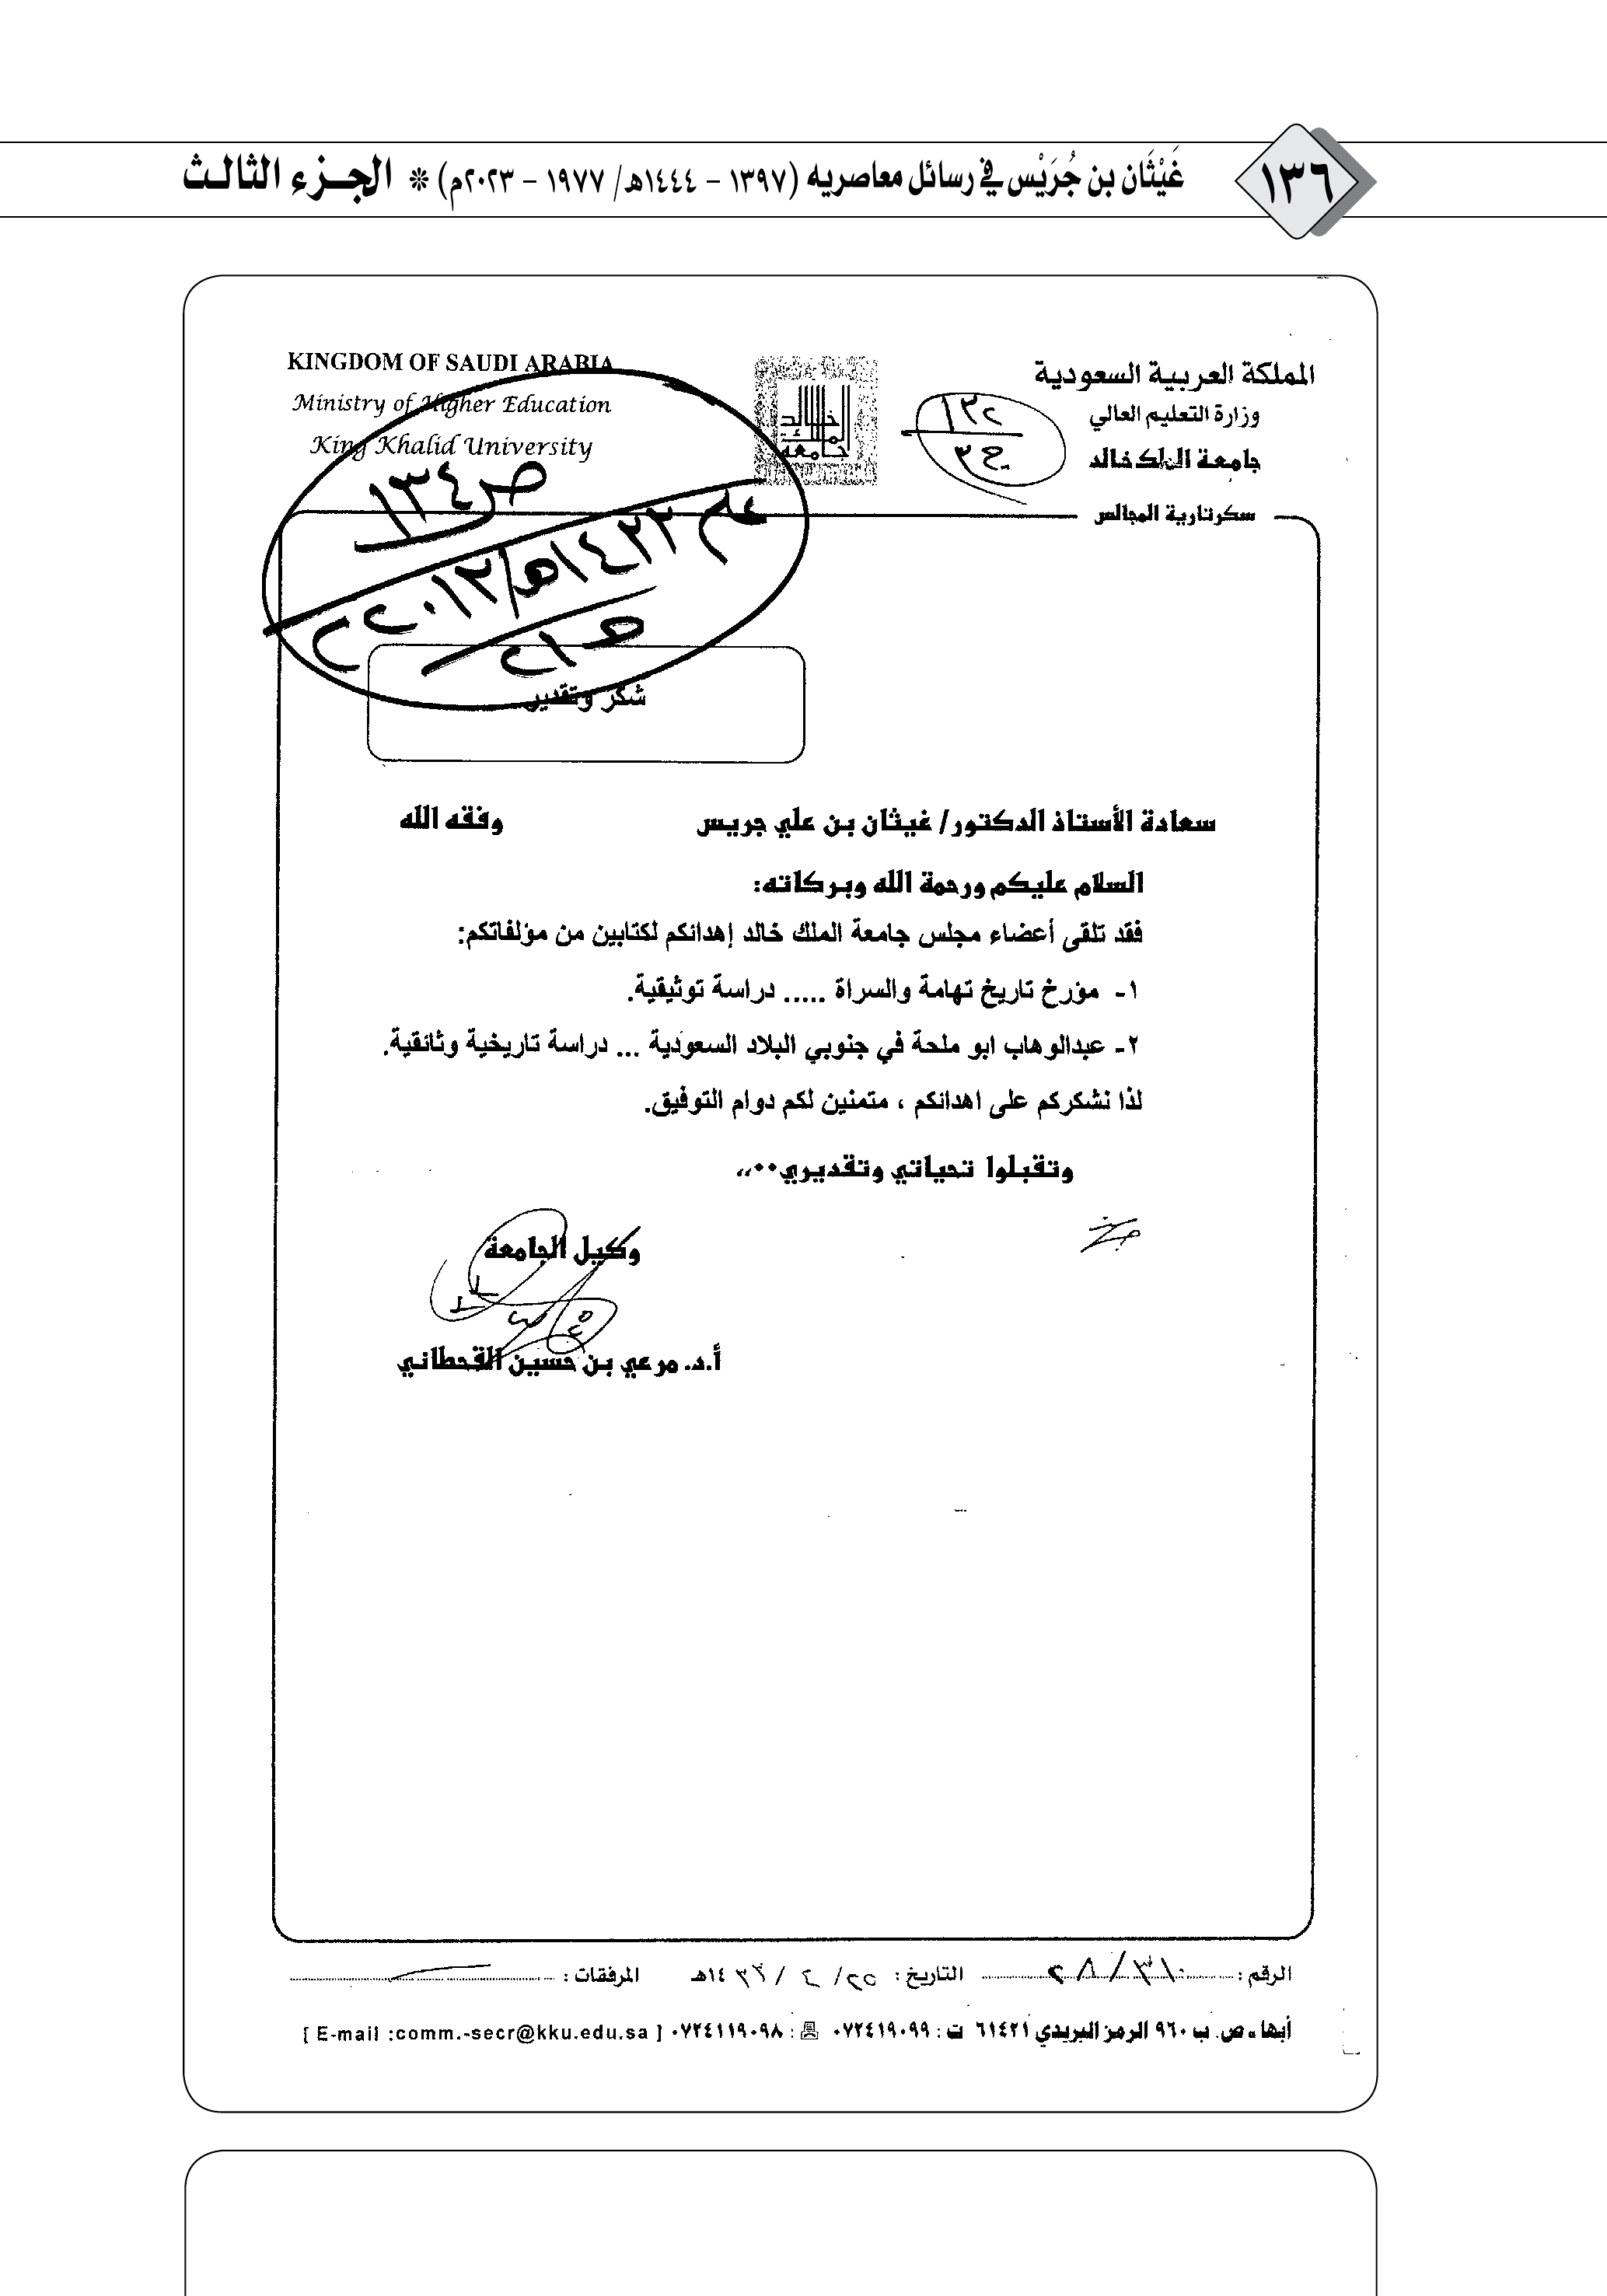 ١٣٦
غَيْثَان بن جُرَيْس في رسائل معاصريه (١٣٩٧ – ١٤٤٤هـ/ ١٩٧٧ – ٢٠٢٣م) * الجـزء الثالث
المملكة العربية السعودية
وزارة التعليم العالي
جامعة الملك خالد
سكرتارية المجالس
KINGDOM OF SAUDI ARABIA
Ministry of Higher Education
King Khalid University
ص ١٣٤
شكر وتقدير
سعادة الأستاذ الدكتور/ غيثان بن علي جريس وفقه الله
السلام عليكم ورحمة الله وبركاته:
فقد تلقى أعضاء مجلس جامعة الملك خالد إهدائكم لكتابين من مؤلفاتكم:
١- مؤرخ تاريخ تهامة والسراة ..... دراسة توثيقية.
٢- عبدالوهاب ابو ملحة في جنوبي البلاد السعودية ... دراسة تاريخية وثائقية.
لذا نشكركم على اهدائكم ، متمنين لكم دوام التوفيق.
وتقبلوا تحياتي وتقديري٠٠،،
وكيل الجامعة
أ.د. مرعي بن حسين القحطاني
الرقم : التاريخ : ١٤هـ المرفقات :
أبها - ص. ب ٩٦٠ الرمز البريدي ٦١٤٢١ ت : ٠٧٢٤١٩٠٩٩ : ٠٧٢٤١١٩٠٩٨ [ E-mail :comm.-secr@kku.edu.sa ]